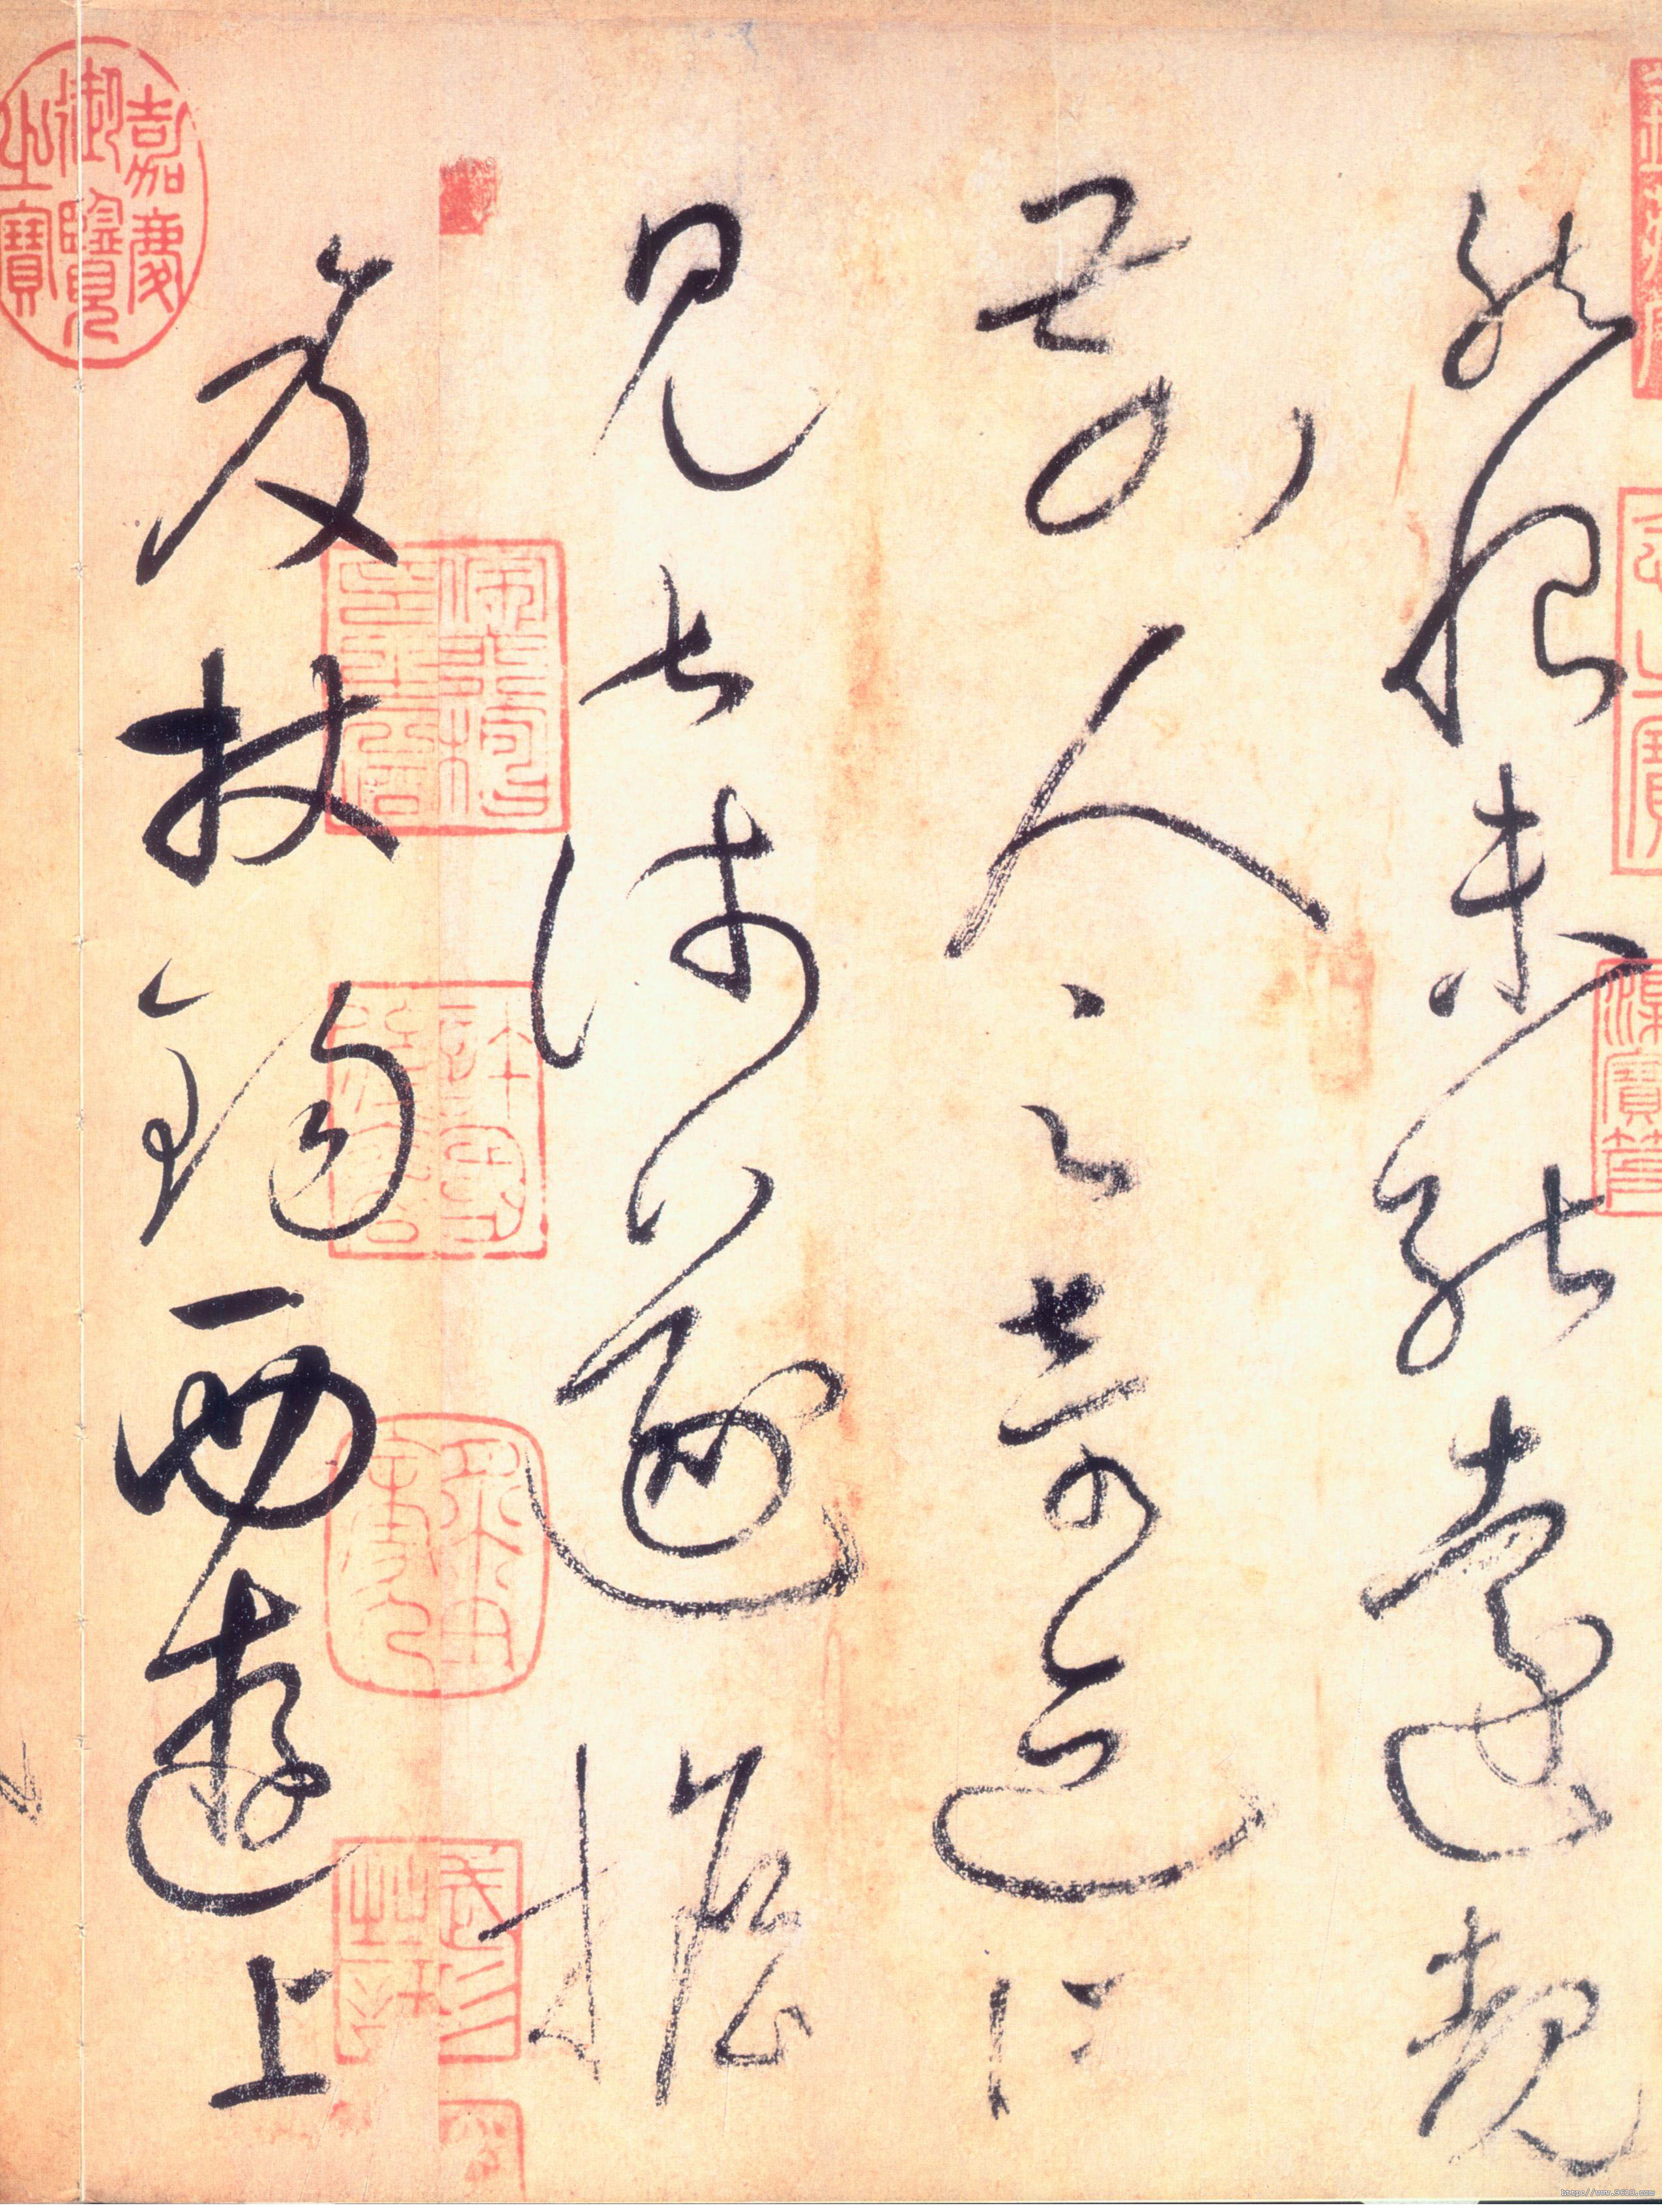 然恨未能遠覩
前人之奇迹所
見甚淺遂擔
笈杖錫西遊上
嘉慶
御覽
之寶
http://www.9610.com